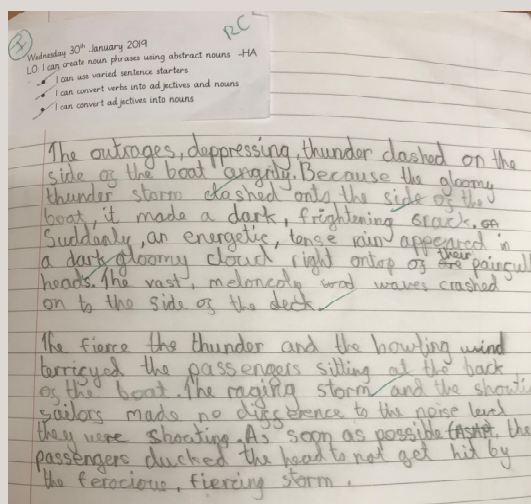 I
RC
Wednesday 30th January 2019
LO: I can create noun phrases using abstract nouns -HA
I can use varied sentence starters
I can convert verbs into adjectives and nouns
I can convert adjectives into nouns
The outrages, deppressing, thunder clashed on the
side of the boat angrily. Because the gloomy
thunder storm clashed onto the side of the
boat, it made a dark, frightening crack.
Suddenly, an energetic, tense rain appeared in
a dark gloomy cloud right ontop of their painfull
heads. The vast, meloncoly waves crashed
on to the side of the deck.
The fierce the thunder and the howling wind
terrifyed the passengers sitting at the back
of the boat. The raging storm and the shouti
sailors made no diffbence to the noise level
they were shouting. As soon as possible (ASAP, the
passengers ducked the head to not get hit by
the ferocious, fiercing storm.